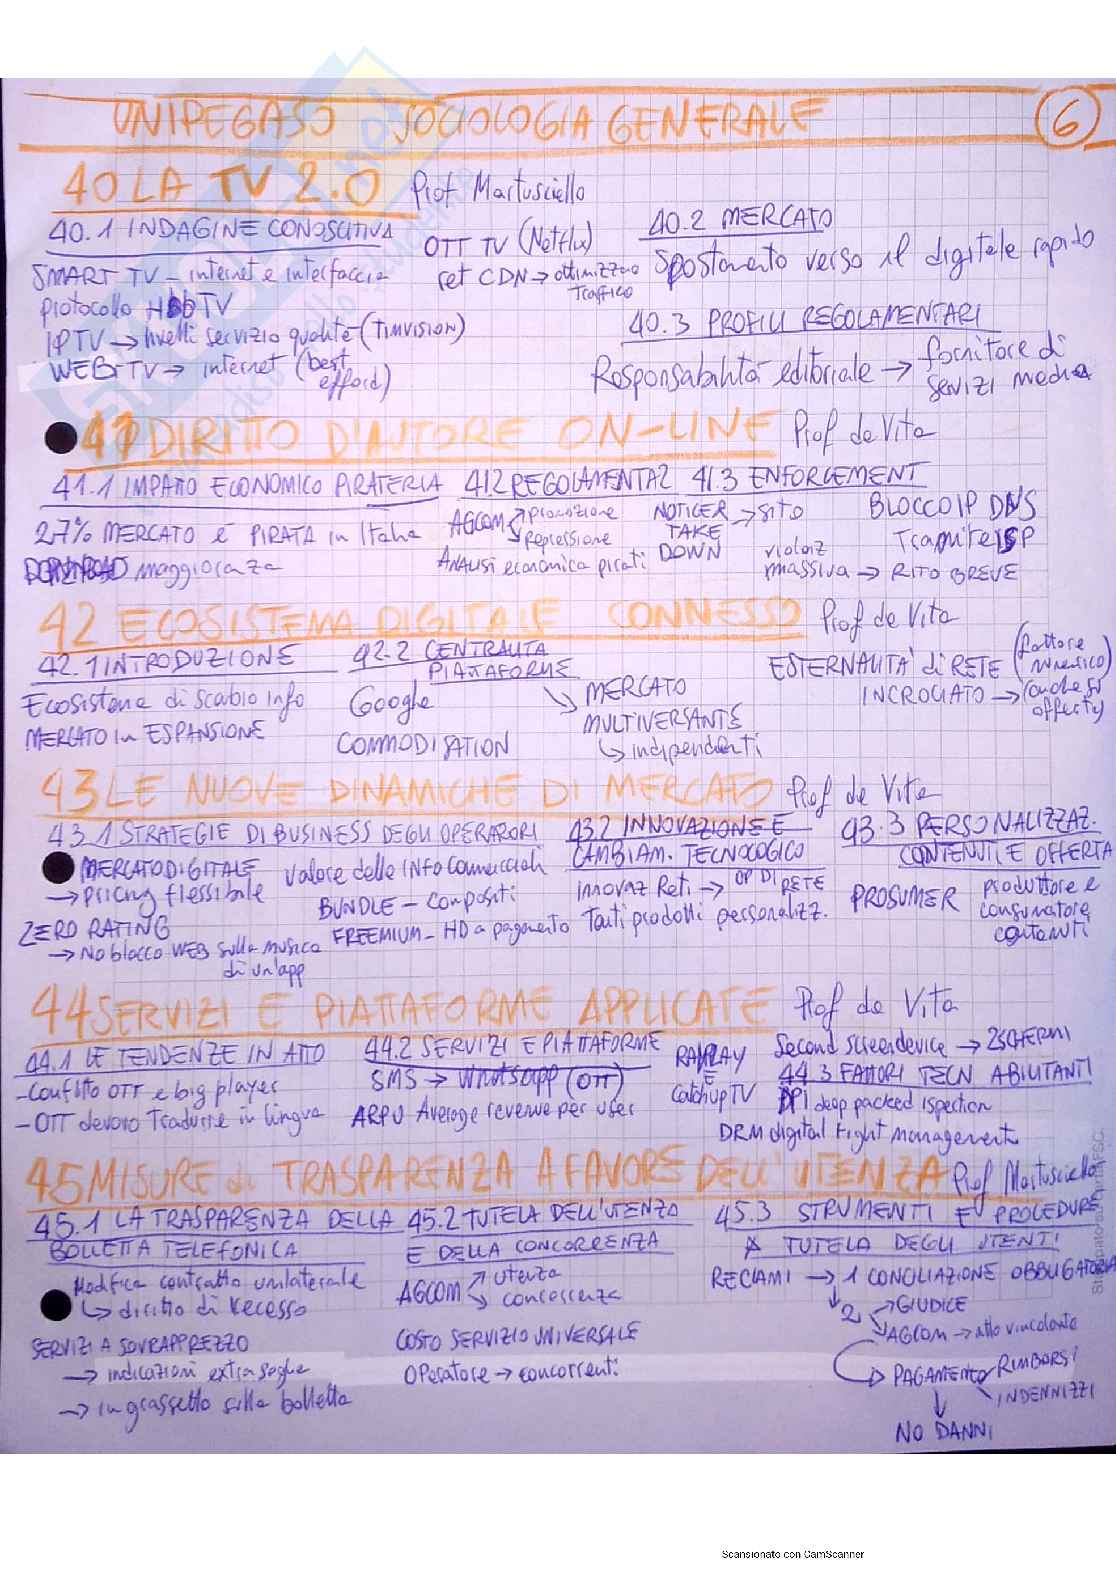 UNIPEGASO SOCIOLOGIA GENERALE 6
40 LA TV 2.0 Prof Martusciello
40.1 INDAGINE CONOSCITIVA
SMART TV - internet e interfaccia
protocollo HbbTV
IPTV → livelli servizio qualità (TIMVISION)
WEB TV → internet (best
efford)
OTT TV (Netflix)
ret CDN → ottimizzano
traffico
40.2 MERCATO
Spostamento verso il digitale rapido
40.3 PROFILI REGOLAMENTARI
Responsabilità editoriale → fornitore di
servizi media
41 DIRITTO D'AUTORE ON-LINE Prof de Vita
41.1 IMPATTO ECONOMICO PIRATERIA
27% MERCATO è PIRATA in Italia
maggioranza
41.2 REGOLAMENTAZ
AGCOM → promozione
→ repressione
Analisi economica pirati
41.3 ENFORCEMENT
NOTICE TAKE DOWN → sito
violaz
massiva → RITO BREVE
BLOCCO IP DNS
Tramite ISP
42 ECOSISTEMA DIGITALE CONNESSO Prof de Vita
42.1 INTRODUZIONE
Ecosistema di scambio info
MERCATO in ESPANSIONE
42.2 CENTRALITA
PIATTAFORME
Google
COMMODISATION
MERCATO
MULTIVERSANTE
↳ indipendenti
ESTERNALITA' di RETE (fattore
numerico)
INCROCIATO →
43 LE NUOVE DINAMICHE DI MERCATO Prof de Vita
43.1 STRATEGIE DI BUSINESS DEGLI OPERARORI
MERCATO DIGITALE
→ pricing flessibile
ZERO RATING
→ No blocco WEB sulla musica
di un'app
valore delle INFO Commerciali
BUNDLE - compositi
FREEMIUM - HD a pagamento
43.2 INNOVAZIONE E
CAMBIAM. TECNOLOGICO
innovaz Reti → OP DI RETE
Tanti prodotti personalizz.
43.3 PERSONALIZZAZ.
CONTENUTI E OFFERTA
PROSUMER produttore e
consumatore
contenuti
44 SERVIZI E PIATTAFORME APPLICATE Prof de Vita
44.1 LE TENDENZE IN ATTO
- Conflitto OTT e big player
- OTT devono Tradurre in lingua
44.2 SERVIZI E PIATTAFORME
SMS → Whatsapp (OTT)
ARPU Average revenue per user
RAIPLAY
E
CatchupTV
Second screen device → 2 SCHERMI
44.3 FATTORI TECN ABILITANTI
DPI deep packed ispection
DRM digital right management
45 MISURE di TRASPARENZA A FAVORE DELL'UTENZA Prof Martusciello
45.1 LA TRASPARENZA DELLA
BOLLETTA TELEFONICA
Modifica contratto unilaterale
↳ diritto di recesso
SERVIZI A SOVRAPPREZZO
→ indicazioni extra soglie
→ in grassetto sulla bolletta
45.2 TUTELA DELL'UTENZA
E DELLA CONCORRENZA
AGCOM → utenza
→ concorrenza
COSTO SERVIZIO UNIVERSALE
Operatore → concorrenti
45.3 STRUMENTI E PROCEDURE
A TUTELA DEGLI UTENTI
RECLAMI → 1 CONCILIAZIONE OBBLIGATORIA
2 → GIUDICE
→ AGCOM → atto vincolante
→ PAGAMENTO → RIMBORSI
INDENNIZZI
↓
NO DANNI
Scansionato con CamScanner